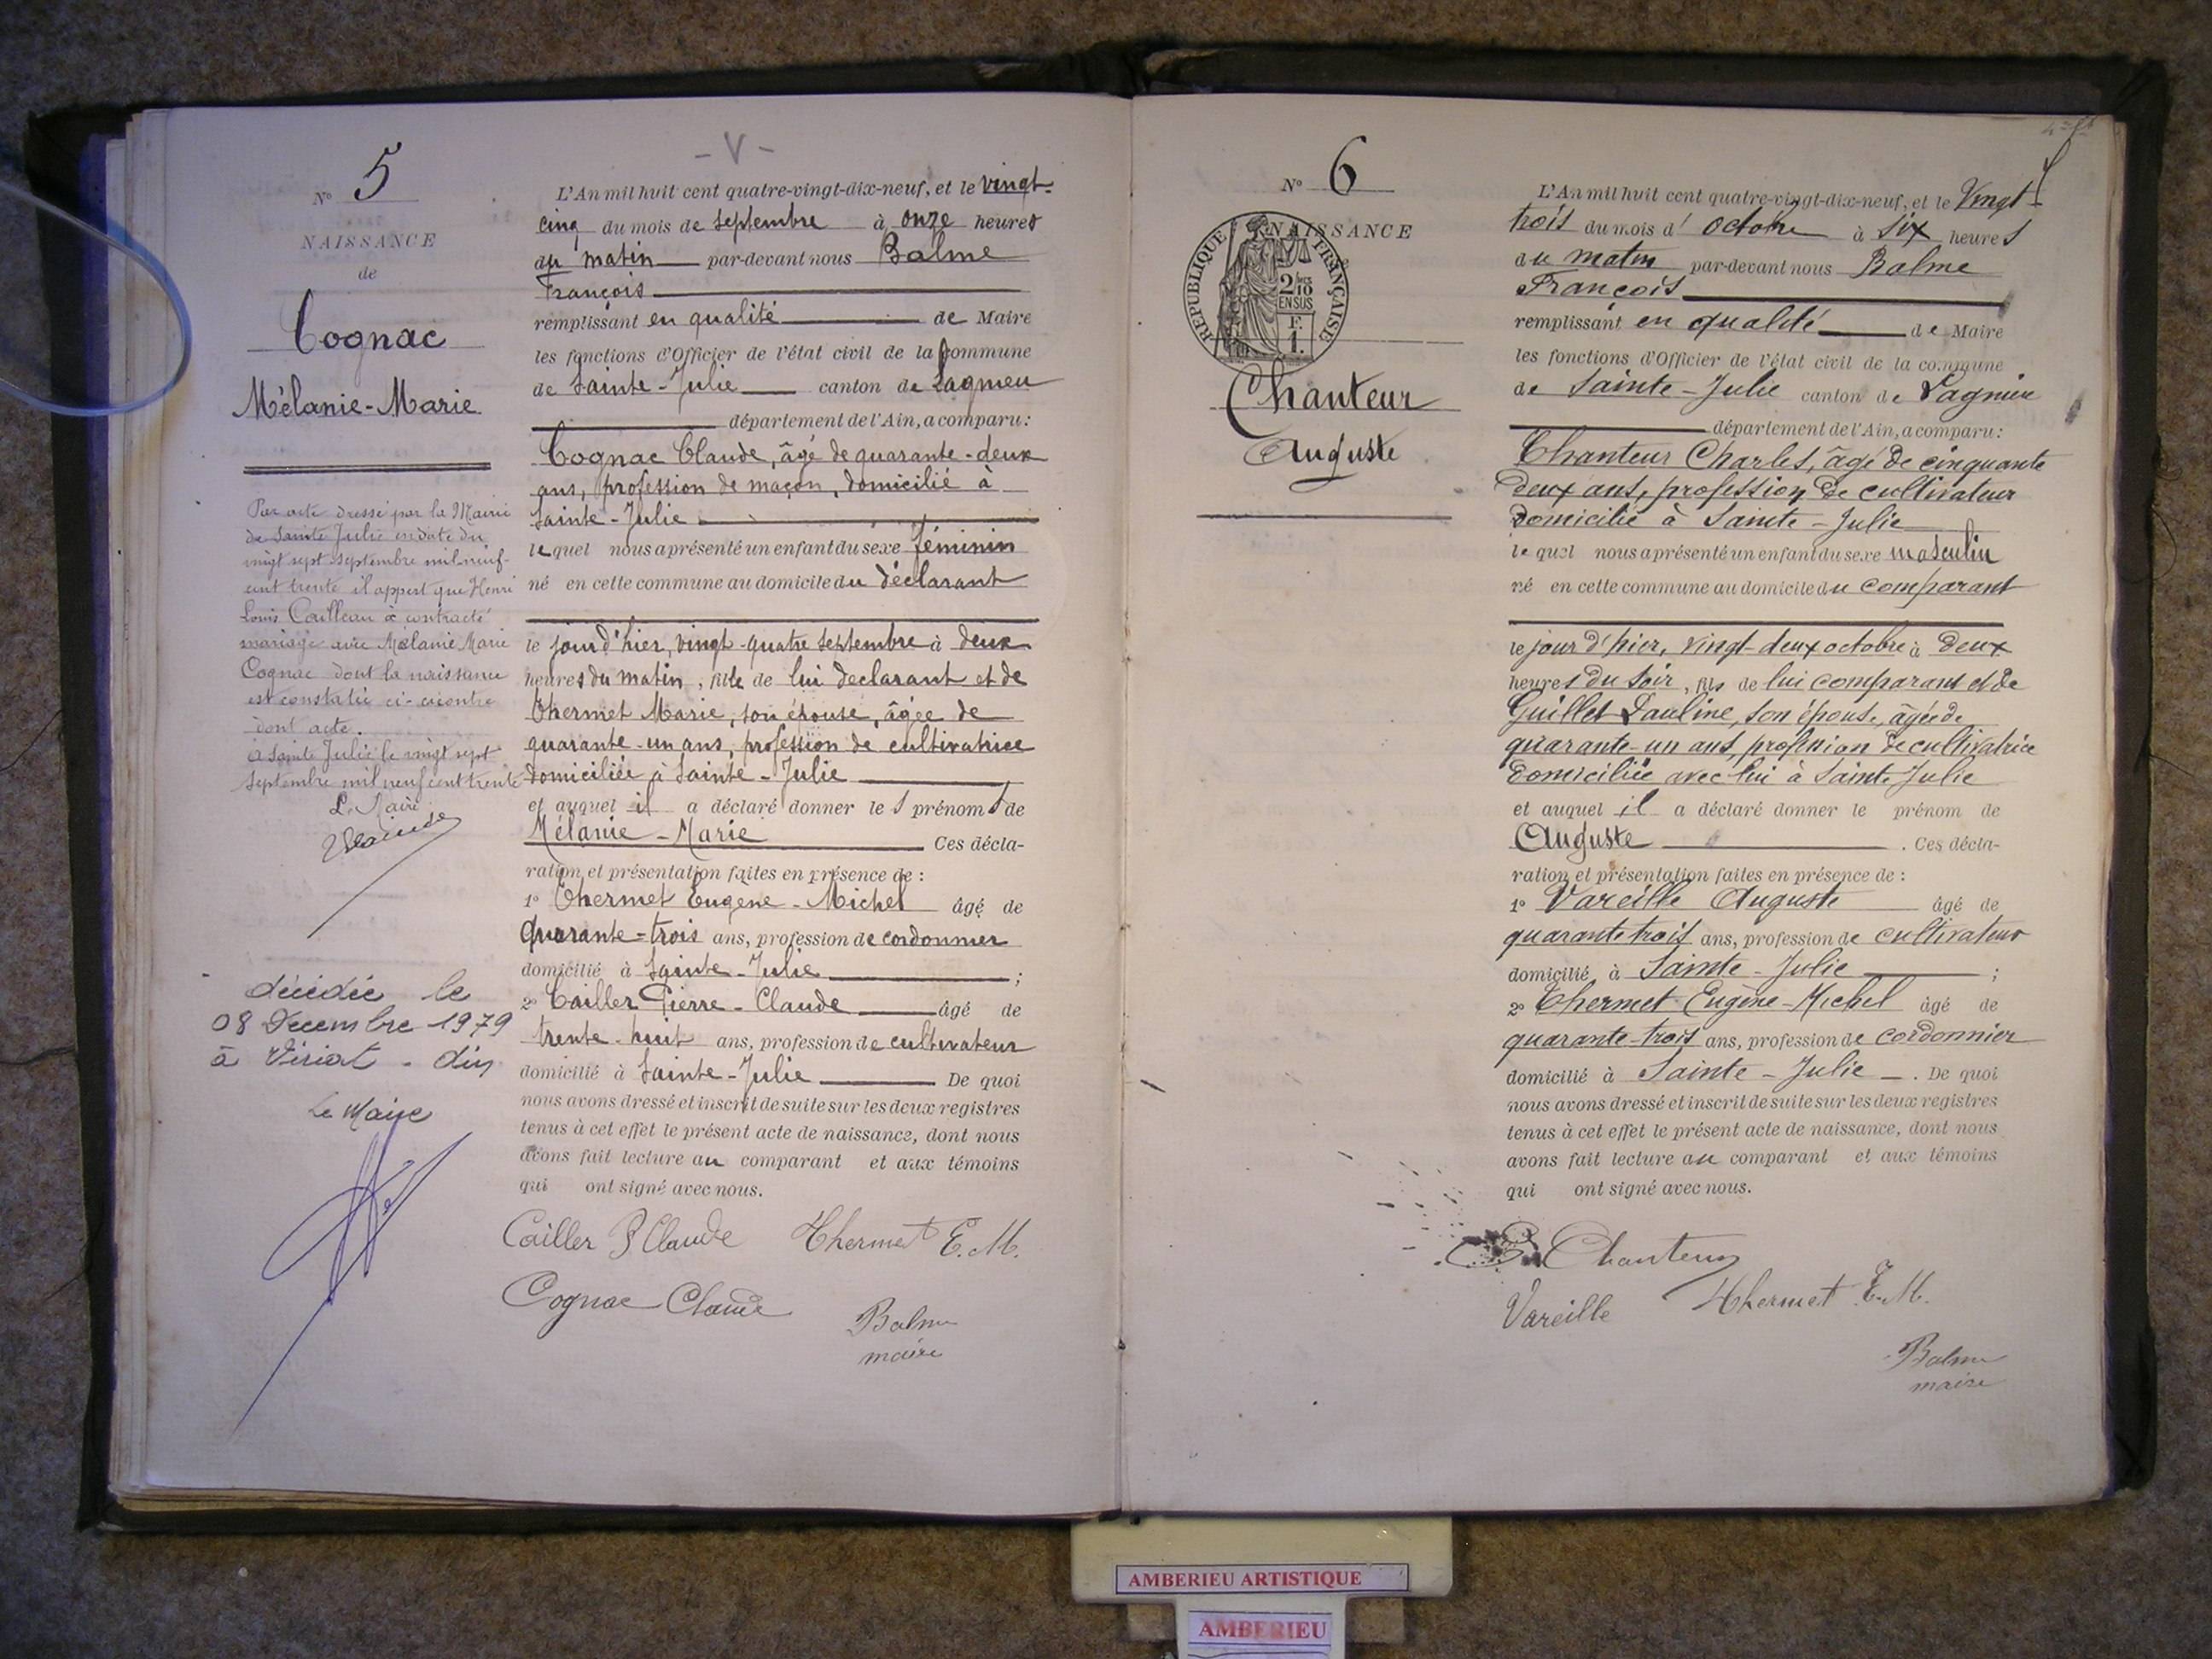 - V -
N° 5
NAISSANCE
de
Cognac
Mélanie-Marie
Par acte dressé par la Mairie
de Sainte Julie en date du
vingt sept septembre mil neuf-
cent trente il appert que Henri
Louis Cailleau a contracté
mariage avec Mélanie Marie
Cognac dont la naissance
est constatée ci-contre
dont acte.
A Sainte Julie le vingt sept
septembre mil neuf cent trente
Le Maire
décédée le
08 Décembre 1979
à Viriat - Ain
Le Maire
L'An mil huit cent quatre-vingt-dix-neuf, et le vingt-
cinq du mois de septembre à onze heures
du matin par-devant nous Balme
François
remplissant en qualité de Maire
les fonctions d'Officier de l'état civil de la commune
de Sainte-Julie canton de Lagnieu
département de l'Ain, a comparu:
Cognac Claude, âgé de quarante-deux
ans, profession de maçon, domicilié à
Sainte-Julie
lequel nous a présenté un enfant du sexe féminin
né en cette commune au domicile du déclarant
le jour d'hier, vingt-quatre septembre à deux
heures du matin, fille de lui déclarant et de
Thermet Marie, son épouse, âgée de
quarante-un ans, profession de cultivatrice
domiciliée à Sainte-Julie
et auquel il a déclaré donner les prénoms de
Mélanie-Marie Ces décla-
ration et présentation faites en présence de :
1° Thermet Eugène-Michel âgé de
quarante-trois ans, profession de cordonnier
domicilié à Sainte-Julie ;
2° Cailler Pierre-Claude âgé de
trente-huit ans, profession de cultivateur
domicilié à Sainte-Julie De quoi
nous avons dressé et inscrit de suite sur les deux registres
tenus à cet effet le présent acte de naissance, dont nous
avons fait lecture au comparant et aux témoins
qui ont signé avec nous.
Cailler P Claude Thermet E. M.
Cognac Claude Balme
maire
N° 6
NAISSANCE
RÉPUBLIQUE FRANÇAISE
2/10
EN SUS
F.
1.
Chanteur
Auguste
L'An mil huit cent quatre-vingt-dix-neuf, et le Vingt-
trois du mois d'octobre à six heures
du matin par-devant nous Balme
François
remplissant en qualité de Maire
les fonctions d'Officier de l'état civil de la commune
de Sainte-Julie canton de Lagnieu
département de l'Ain, a comparu:
Chanteur Charles, âgé de cinquante
deux ans, profession de cultivateur
domicilié à Sainte-Julie
lequel nous a présenté un enfant du sexe masculin
né en cette commune au domicile du comparant
le jour d'hier, vingt-deux octobre à deux
heures du soir, fils de lui comparant et de
Guillet Pauline, son épouse, âgée de
quarante-un ans, profession de cultivatrice
domiciliée avec lui à Sainte Julie
et auquel il a déclaré donner le prénom de
Auguste . Ces décla-
ration et présentation faites en présence de :
1° Vareille Auguste âgé de
quarante trois ans, profession de cultivateur
domicilié à Sainte-Julie ;
2° Thermet Eugène-Michel âgé de
quarante-trois ans, profession de cordonnier
domicilié à Sainte-Julie . De quoi
nous avons dressé et inscrit de suite sur les deux registres
tenus à cet effet le présent acte de naissance, dont nous
avons fait lecture au comparant et aux témoins
qui ont signé avec nous.
Chanteur
Vareille Thermet E. M.
Balme
maire
AMBERIEU ARTISTIQUE
AMBERIEU